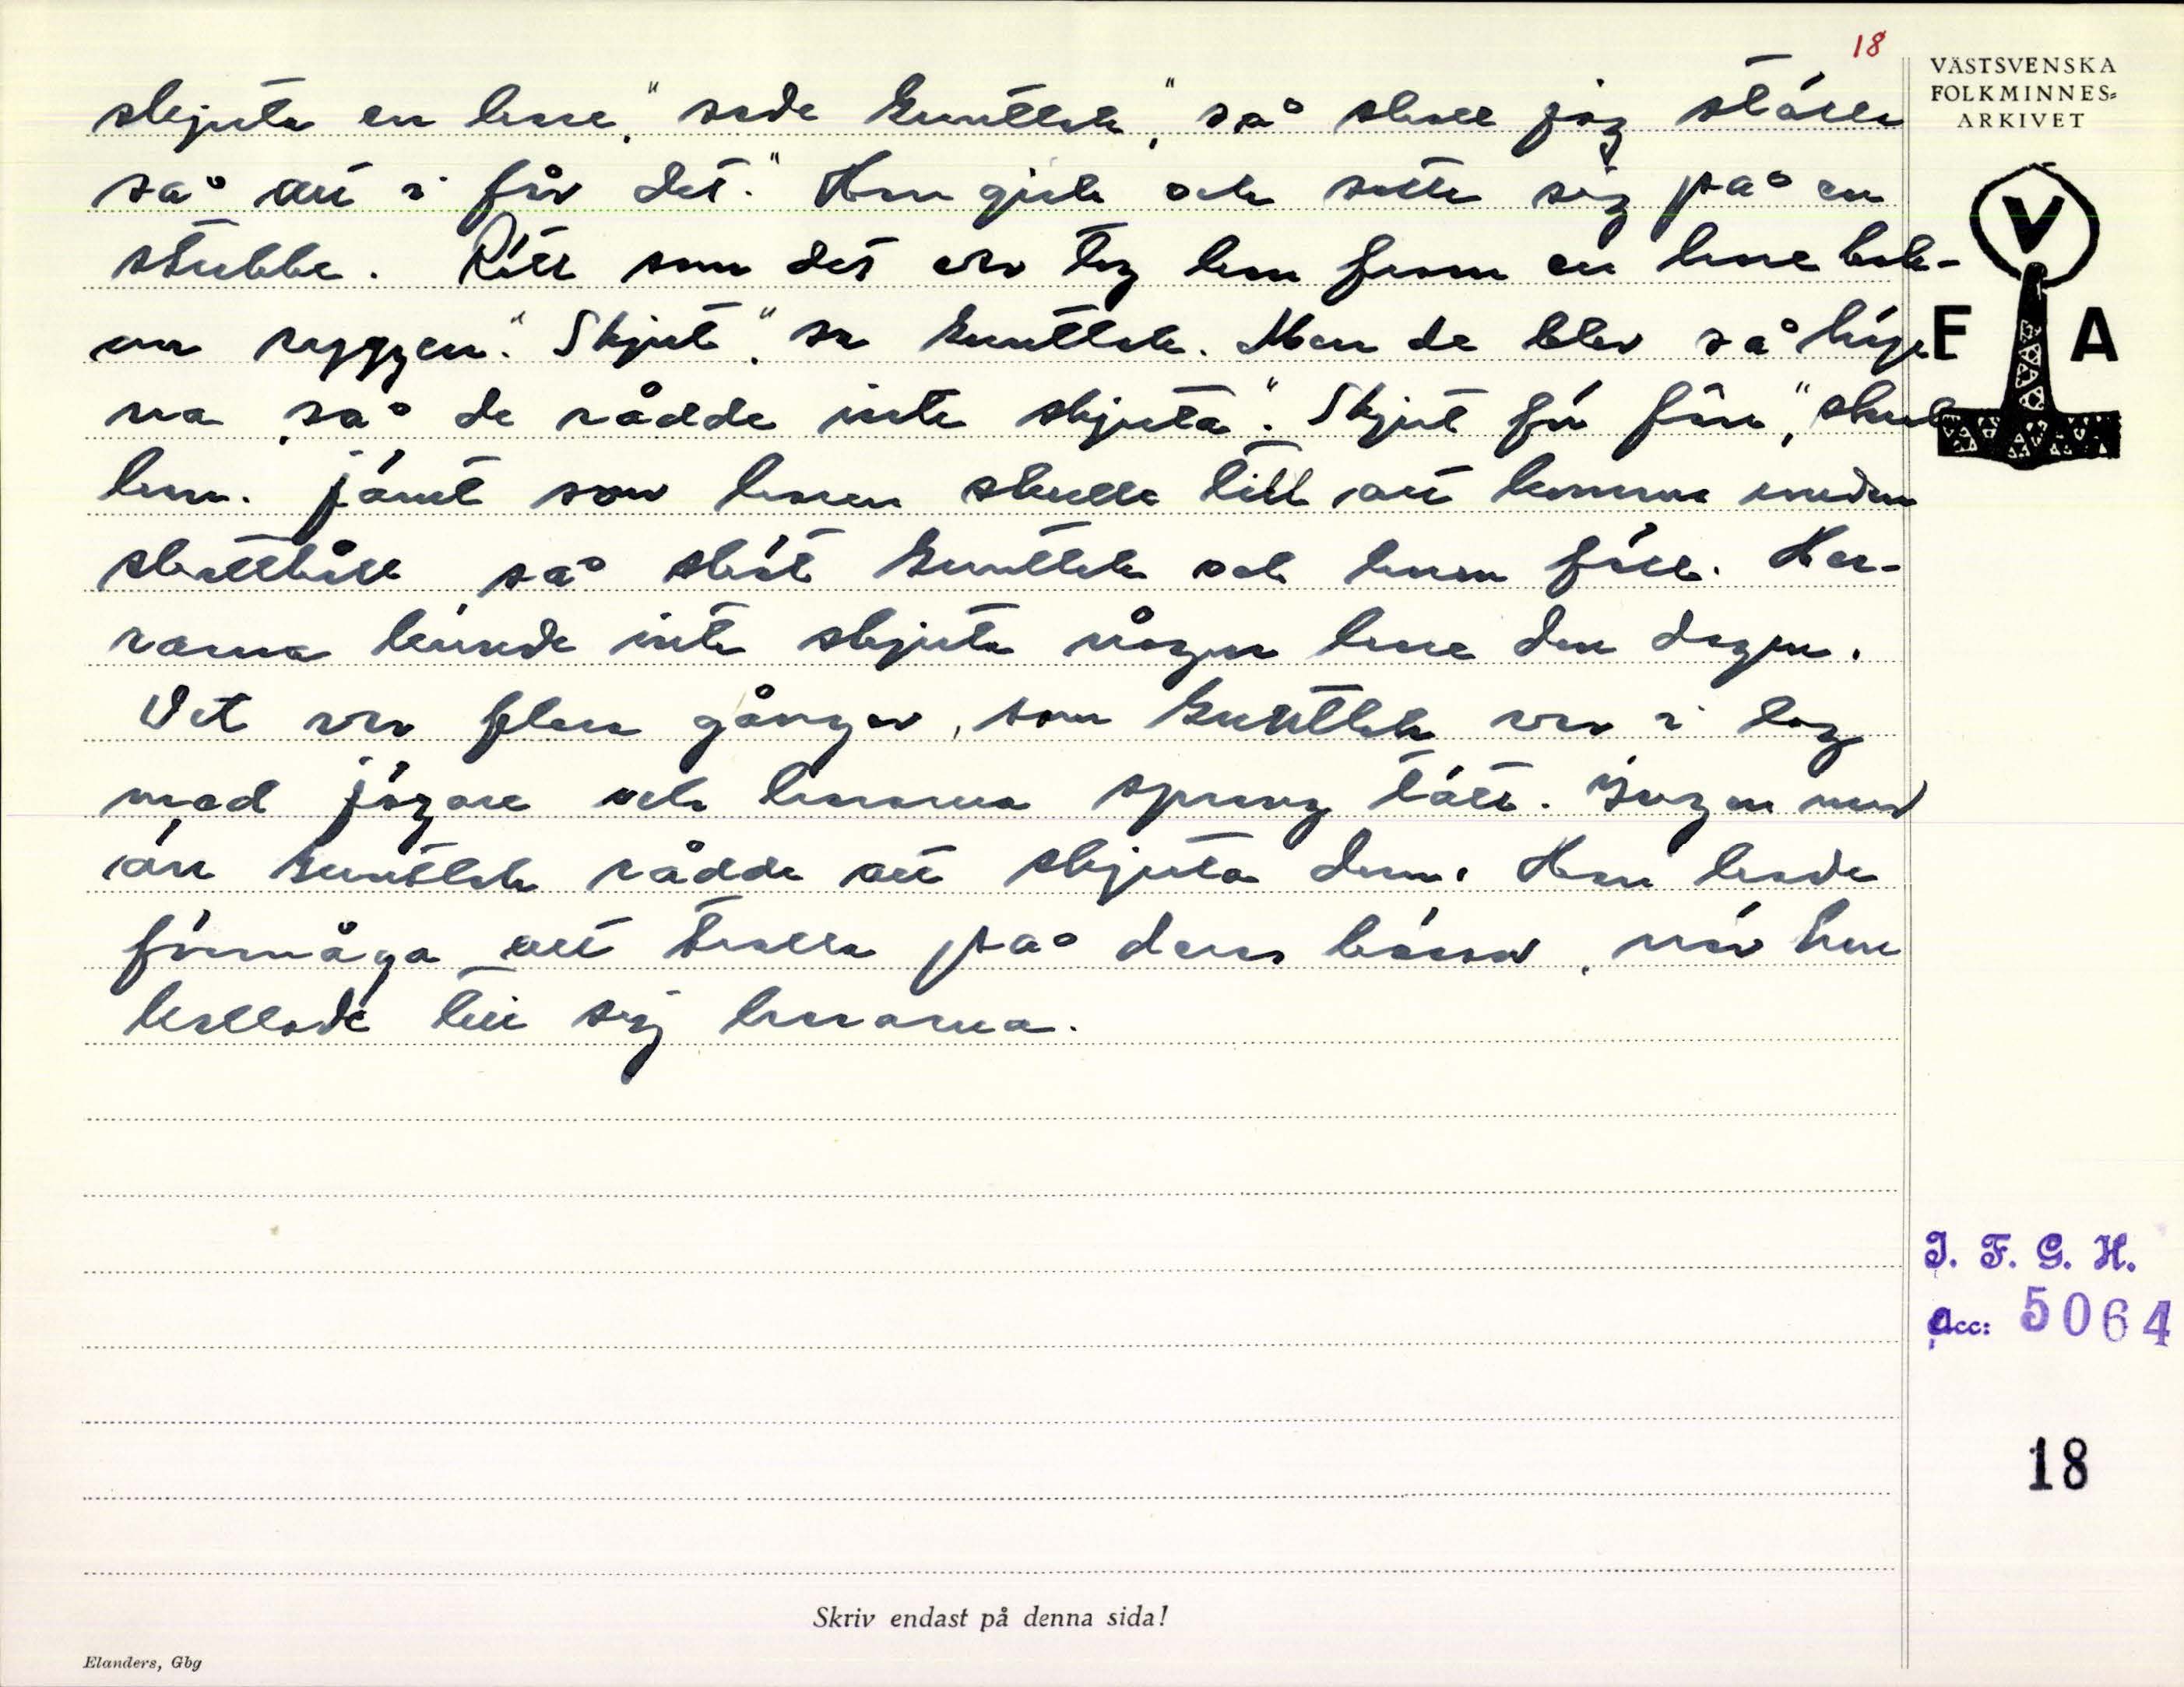 18
skjuta en hare," sade Gunttak, "så skall jag ställa
så att i får det." Han gick och satte sig på en
stubbe. Rätt som det var tog han fram en hare bak-
om ryggen. "Skjut", sa Gunttak. Men de blev så
na så de rådde inte skjuta. "Skjut för fan," skrek
han. Jämt som haren skulle till att komma undan
skotthåll så sköt Gunttak och haren föll. Her-
rarna kunde inte skjuta någon hare den dagen.
Det var flera gånger, som Gunttak var i lag
med jägare och hararna sprang tätt. Ingen mer
än Gunttak rådde att skjuta dem. Han hade
förmåga att trolla på deras bössor, när han
kallade till sig hararna.
VÄSTSVENSKA
FOLKMINNES=
ARKIVET
V
F A
I. F. G. H.
Acc: 5064
18
Skriv endast på denna sida!
Elanders, Gbg